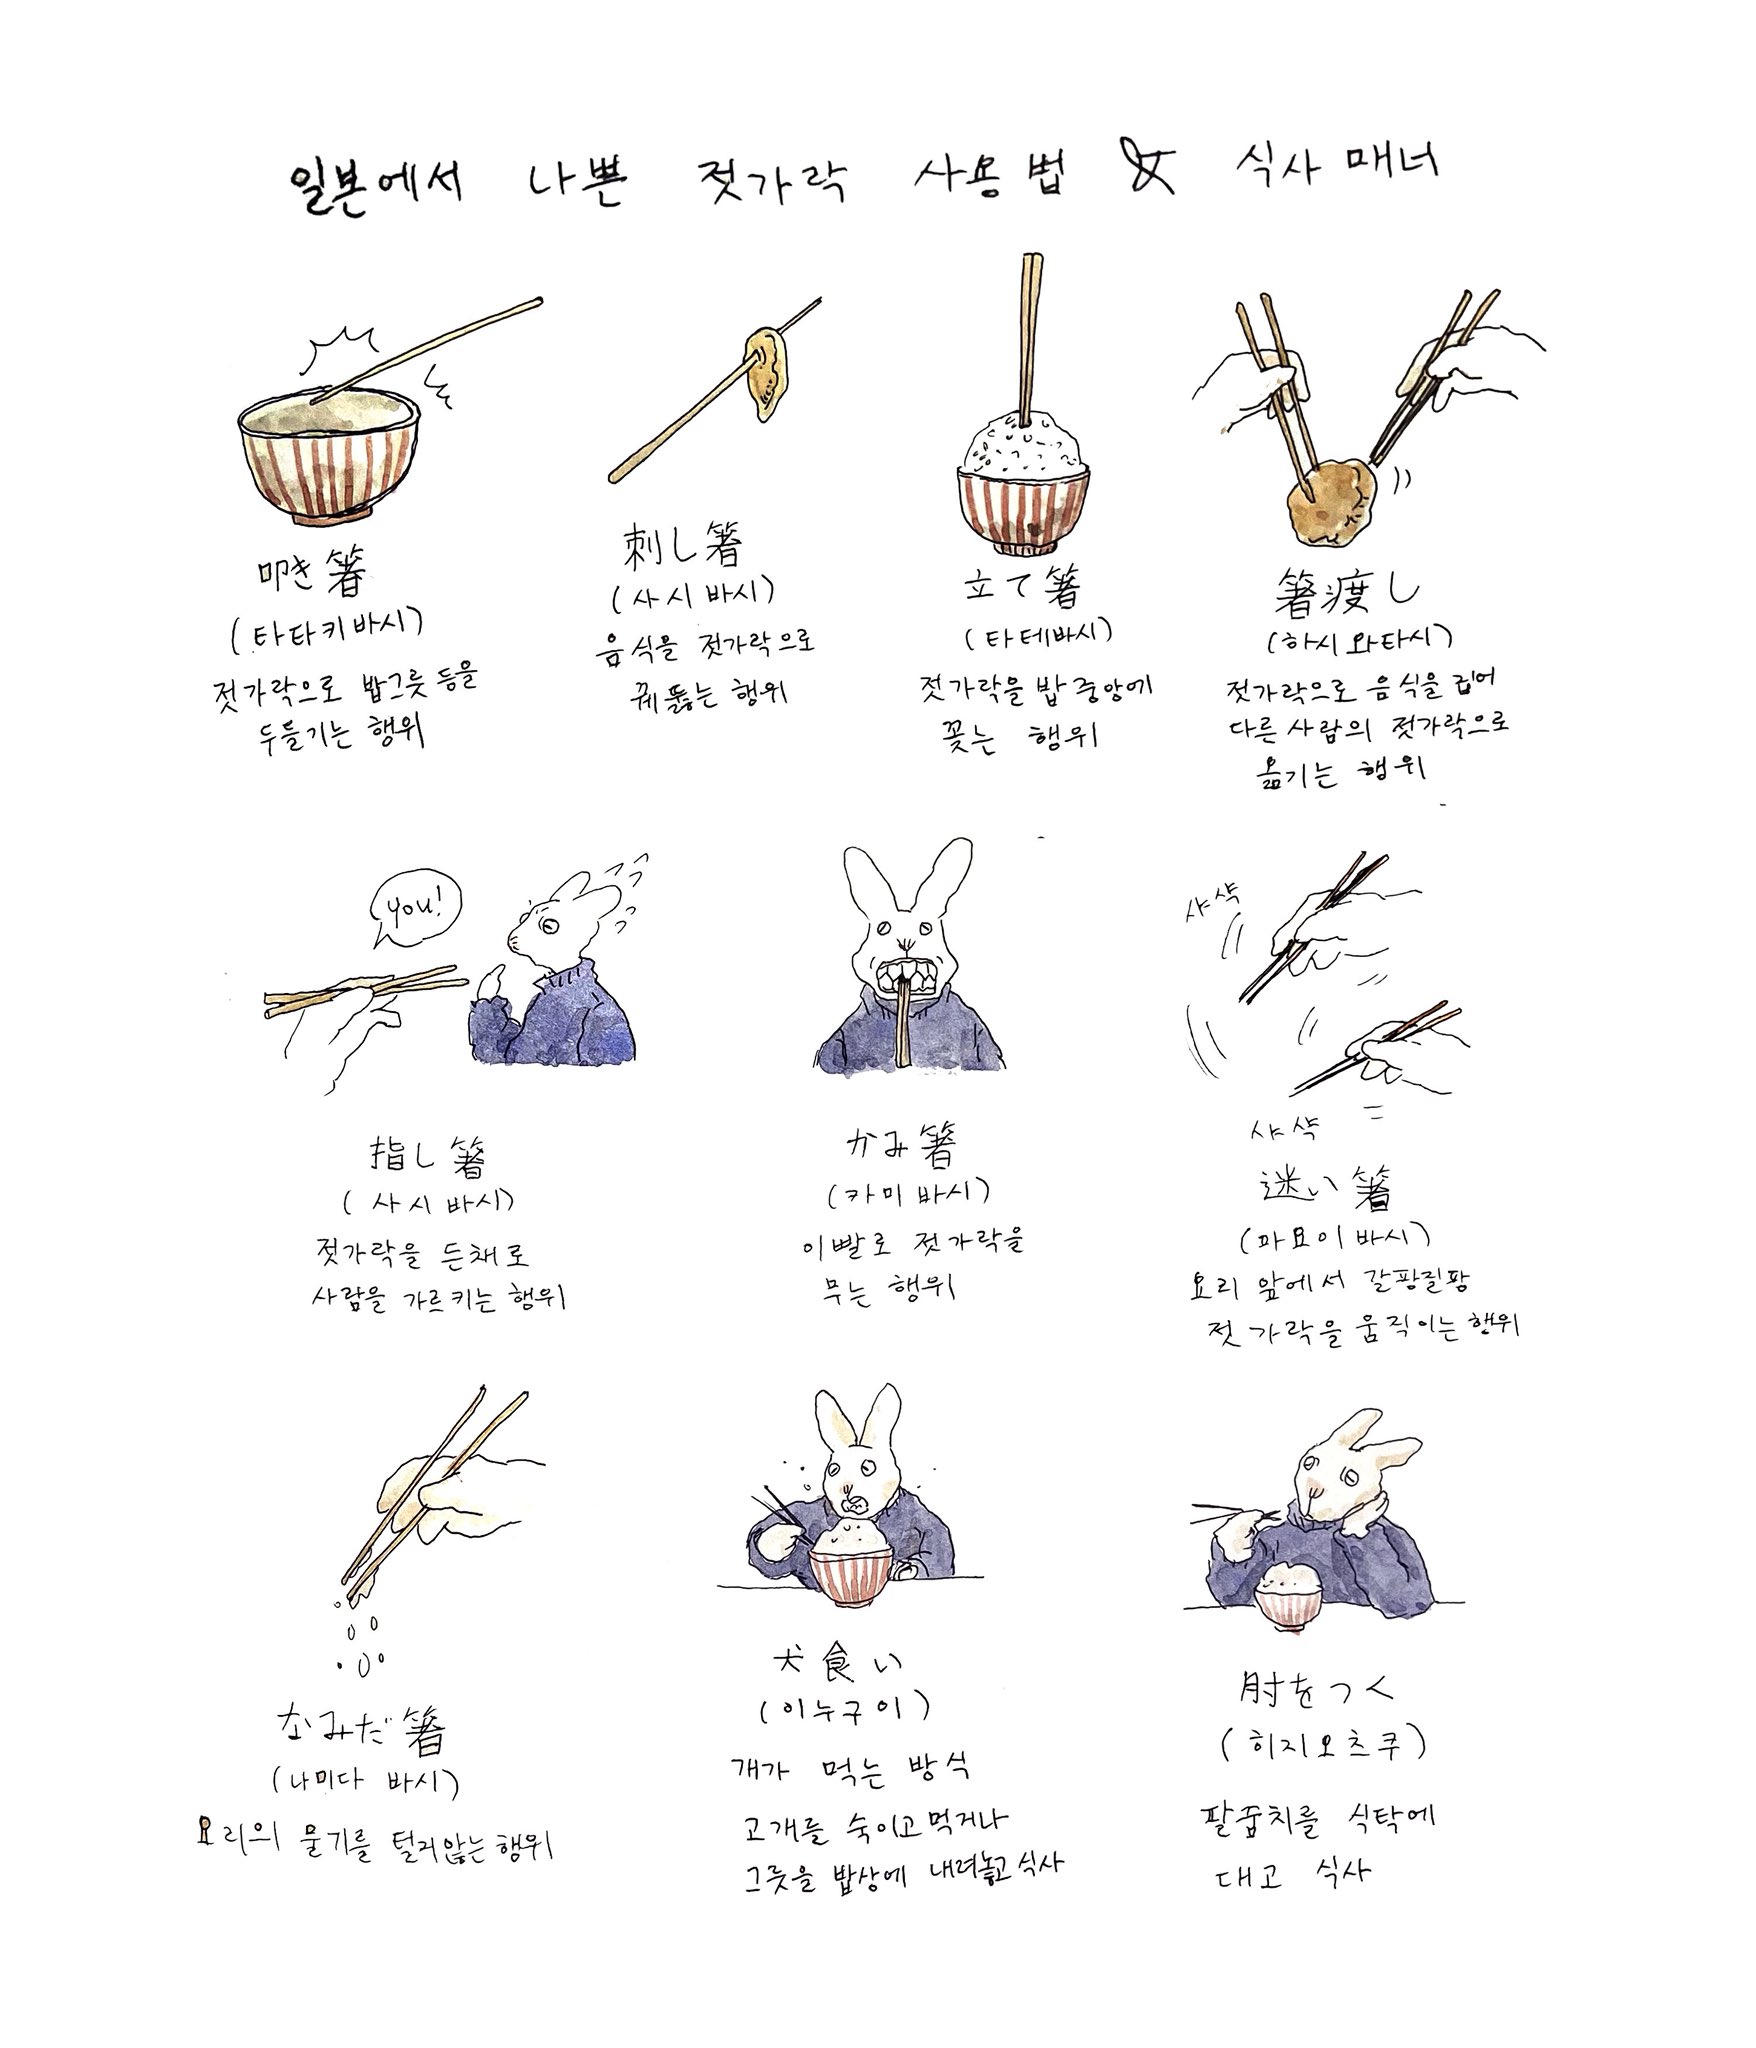 일본에서 나쁜 젓가락 사용법 & 식사매너
叩き箸
(타타키바시)
젓가락으로 밥그릇등을
두들기는 행위
刺し箸
(사시바시)
음식을 젓가락으로
꿰뚫는 행위
立て箸
(타테바시)
젓가락을 밥중앙에
꽂는 행위
箸渡し
(하시와타시)
젓가락으로 음식을 집어
다른사람의 젓가락으로
옮기는 행위
you!
指し箸
(사시바시)
젓가락을 든채로
사람을 가르키는 행위
かみ箸
(카미바시)
이빨로 젓가락을
무는 행위
샤샥
샤샥
迷い箸
(마요이바시)
요리 앞에서 갈팡질팡
젓가락을 움직이는 행위
なみだ箸
(나미다 바시)
요리의 물기를 털지않는행위
犬食い
(이누구이)
개가 먹는 방식
고개를 숙이고먹거나
그릇을 밥상에 내려놓고식사
肘をつく
(히지오츠쿠)
팔꿈치를 식탁에
대고 식사